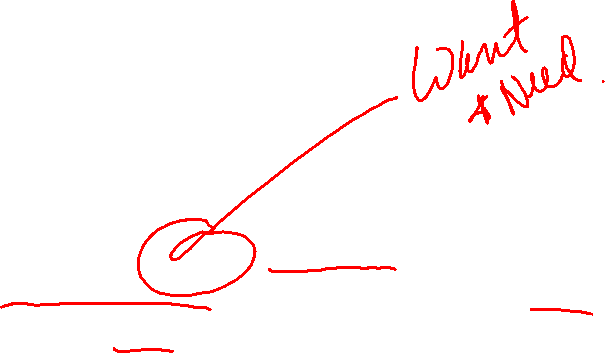 Want
& Need.